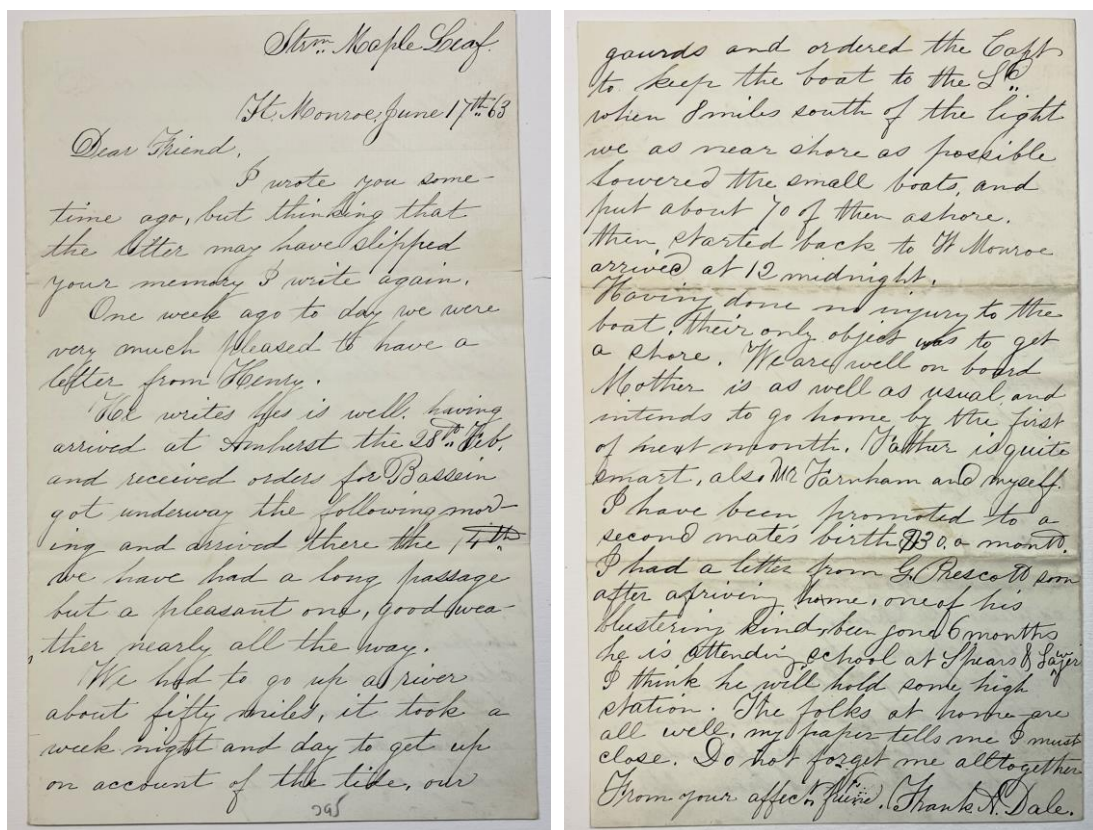 Strm Maple Leaf.
Ft. Monroe, June 17th 63
Dear Friend,
I wrote you some-
time ago, but thinking that
the letter may have slipped
your memory I write again.
One week ago to day we were
very much pleased to have a
letter from Henry.
He writes he is well, having
arrived at Amherst the 28th Feb.
and received orders for Bassein
got underway the following morn-
ing and arrived there the
we have had a long passage
but a pleasant one, good wea-
ther nearly all the way.
We had to go up a river
about fifty miles, it took a
week night and day to get up
on account of the tide, our
395
gaurds and ordered the Capt
to keep the boat to the Sd
when 8 miles south of the light
we as near shore as possible
lowered the small boats, and
put about 70 of then ashore.
then started back to Ft Monroe
arrived at 12 midnight.
Having done no injury to the
boat, their only object was to get
a shore. We are well on board
Mother is as well as usual, and
intends to go home by the first
of next month. Father is quite
smart, also Mr Farnham and myself.
I have been promoted to a
second mate's birth $30. a month.
I had a letter from G. Prescott soon
after arriving home, one of his
blustering kind, been gone 6 months
he is attending school at Spears &
I think he will hold some high
station. The folks at home are
all well, my paper tells me I must
close. Do not forget me alltogether
From your affec. friend, Frank A. Dale.